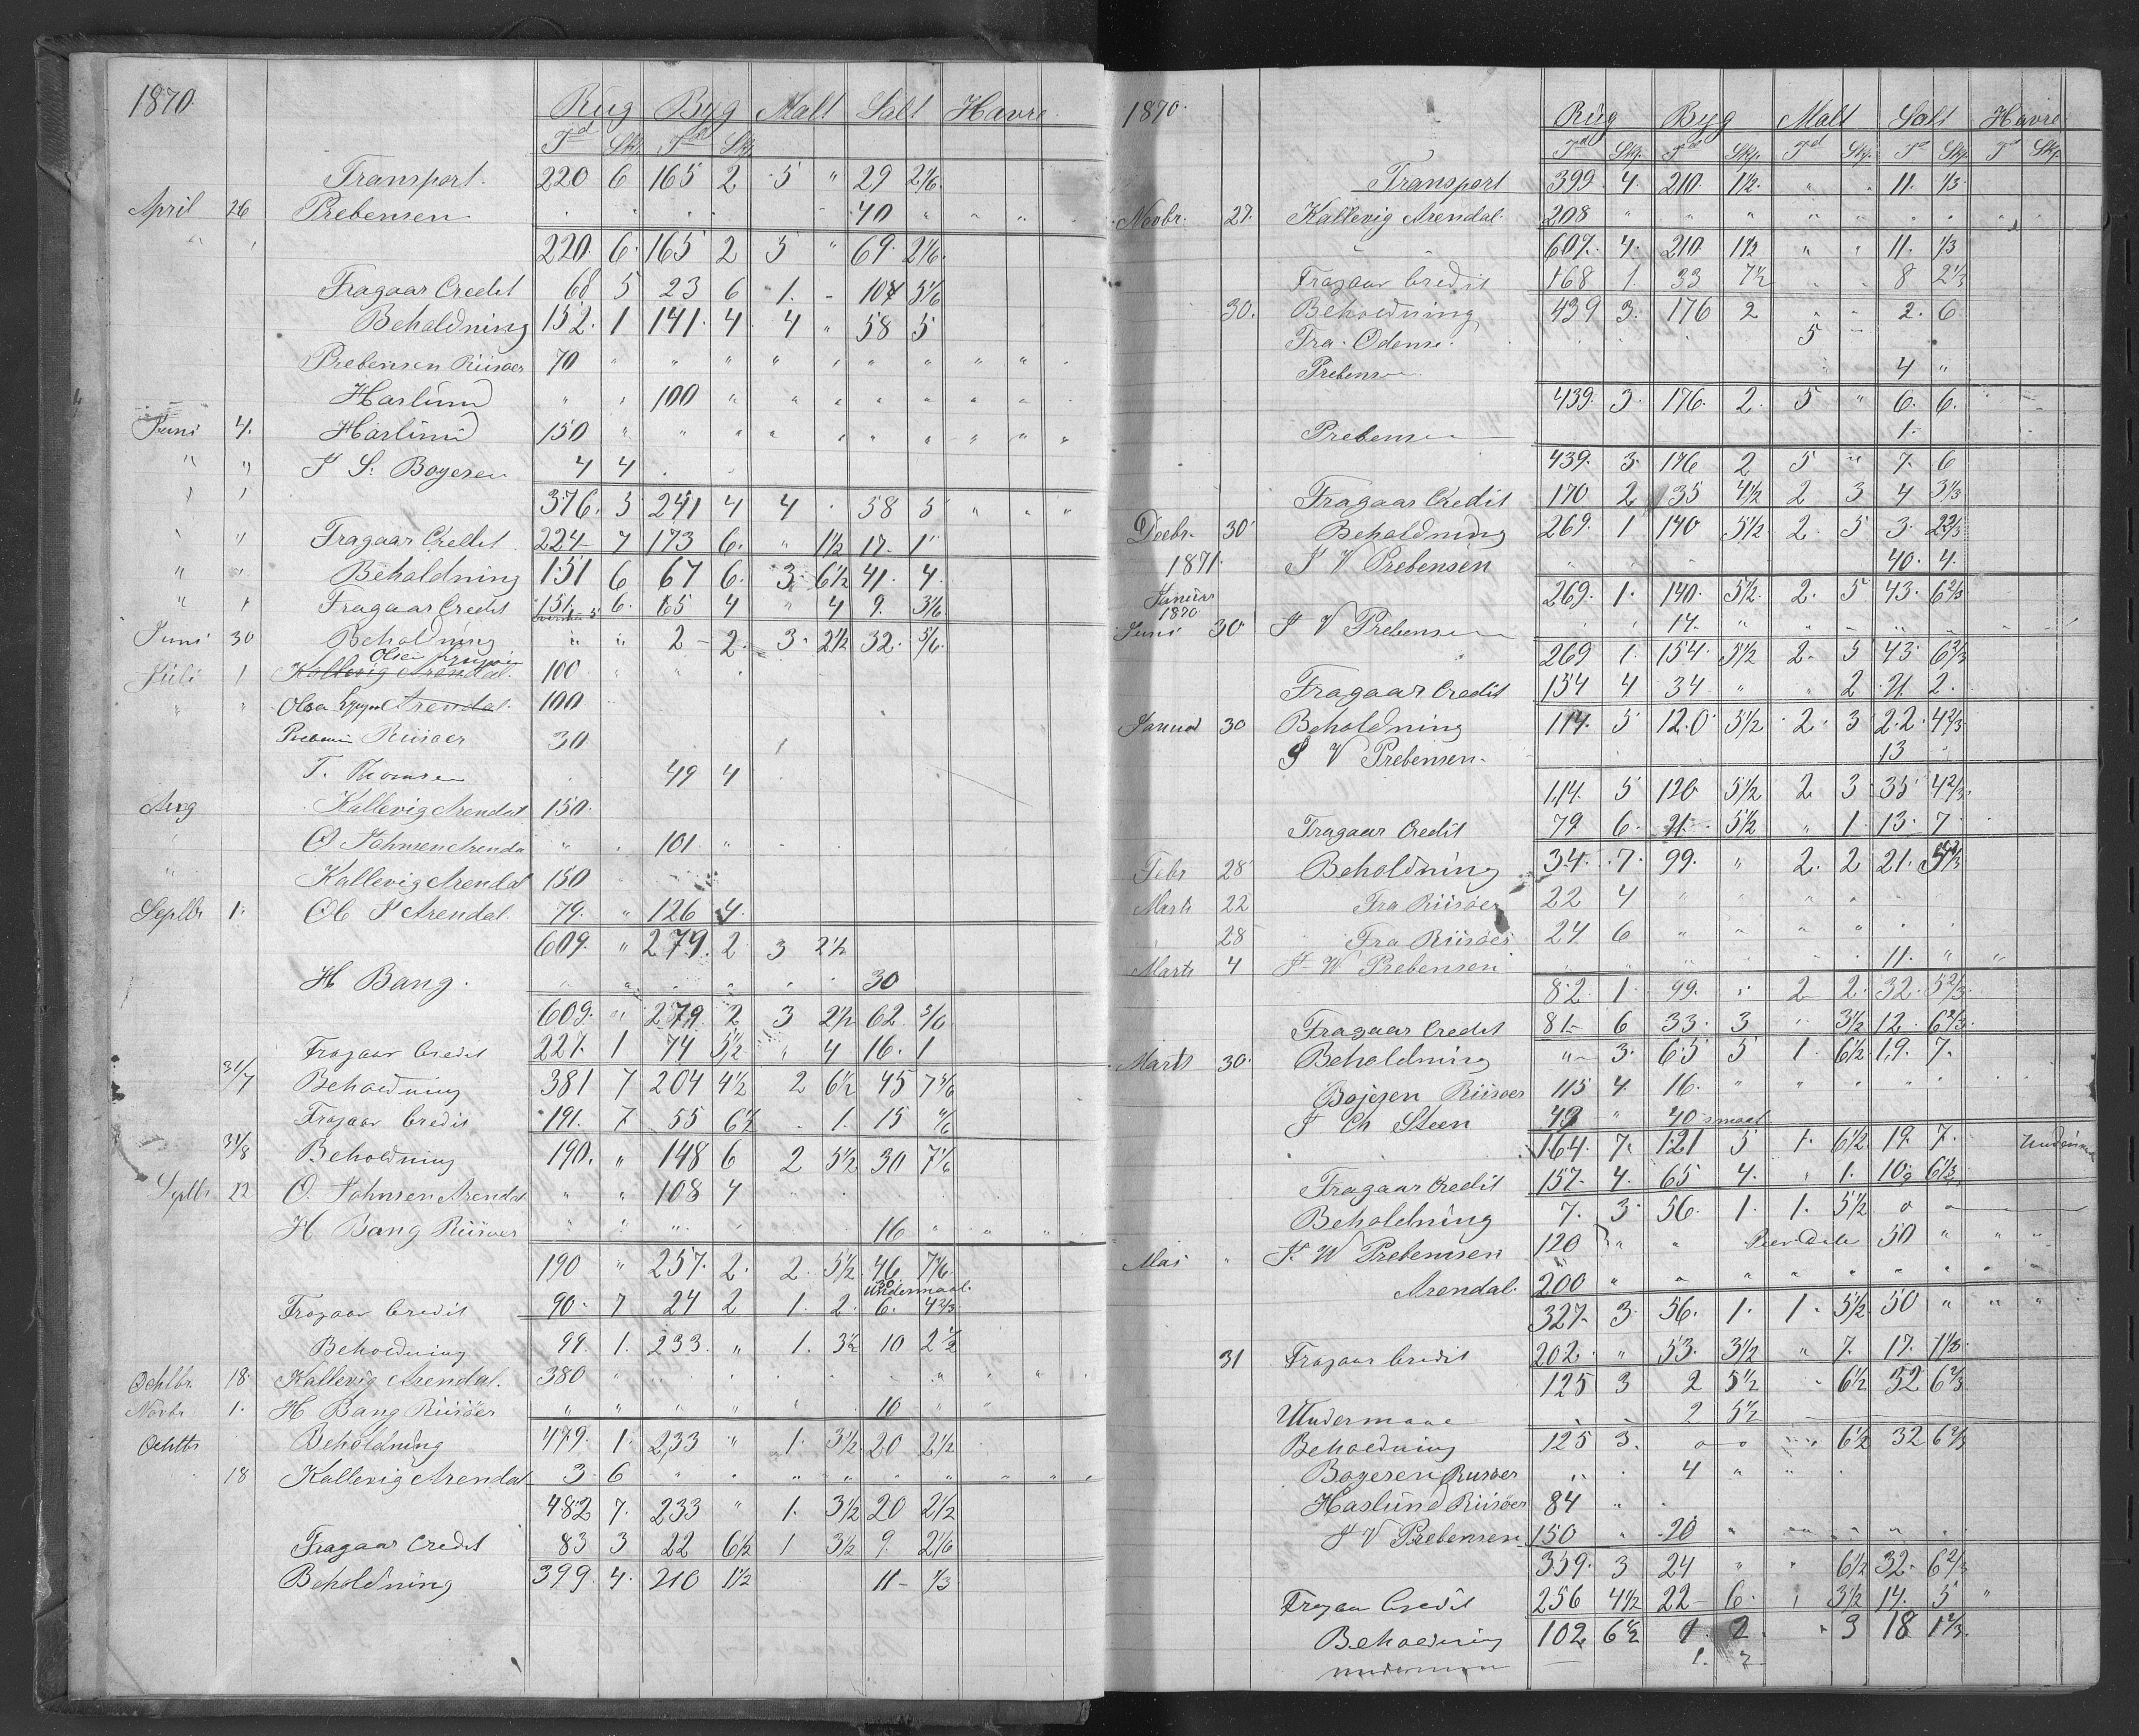 1870.
Rug Byg Malt Salt Havre
Td Skp Td Skp
Transport. 220 6 165 2 5 " 29 2 1/6
April 26 Prebensen 40 " " "
" " 220. 6. 165 2 5 " 69. 2 1/6.
Fragaar Credit 68 5 23 6 1. - 5 1/6
Beholdning 152. 1 141. 4. 4 " 58 5
Prebensen Riisøer 70 " " " " " " " " " "
Haslund " " 100 " " " " " " "
Juni 4. Haslund 150 " " " " " " " " " "
" " J S. Boyesen 4 4
" " 376. 5 241 4 4 . 58 5 " " "
" " Fragaar Credit 224 7 173 6. " 1 1/2 17. 1
" " Beholdning 151 6 67 6. 3. 6 1/2 41. 4.
" " Fragaar Credit 151. 6. 65 4 " 4 9. 3 1/6
Juni 30 Beholdning " " 2 - 2. 3. 2 1/2 32. 5/6
Olsen
Juli 1 Kallevig Arendal. 100 " " "
" " Olsen Arendal. 100
Riisøer 30
T. Thomsen 49 4
Aug Kallevig Arendal 150.
O Johnsen Arenda " . 101. "
" Kallevig Arendal 150
Septbr 1. Arendal. 79. " 126 4.
609. " 279. 2 3 2 1/2
H Bang. 30
609. " 279. 2 3 2 1/2 62 5/6
Fragaar Credit 227. 1 74 5 1/2 " 4 16. 1
31/7 Beholdning 381 7 204 4 1/2 2 6 1/2 45 7 5/6
Fragaar Credit 191. 7 55 6 1/2 . 1. 15 4/6
31/8 Beholdning 190. " 148 6 2 5 1/2 30 7 1/6
Septbr 22 O. Johnsen Arendal " " 108 4
H Bang Riisøer " " " " 16 " " " "
190 " 257. 2. 2. 5 1/2. 46 7 1/6.
undermaal.
Fragaar Credit 90. 7 24 2 1. 2. 6. 4 2/3
Beholdning 99. 1. 233. " 1. 3 1/2 10 2 1/2
Octbr. 18. Kallevig Arendal. 380 " " " " " " " " "
Novbr 1. H Bang Riisøer " " " " " 10 " "
Octbr Beholdning 479. 1. 233 " 1. 3 1/2 20 2 1/2
18 Kallevig Arendal 3. 6 " " " " " " " " "
482 7. 233 " 1. 3 1/2 20 2 1/2
Fragaar Credit 83 3 22 6 1/2 1 3 1/2 9. 2 1/6
Beholdning 399. 4. 210 1 1/2 11 - 1/3
1870.
Rug Byg Malt Salt Havre
Td Skp. Td Skp. Td Skp. Td Skp. Td Skp
Transport 399. 4. 210. 1 1/2. " " 11. 1/3.
Novbr. 27. Kallevig Arendal. 208 " " " " " " "
607. 4. 210. 1 1/2 " " 11. 1/3
Fragaar Credit 168 1. 33 7 1/2 . . 8 2 1/3
30. Beholdning 439 3. 176 2 " " 2. 6
Fra Odense. 5 -
Prebensen 4 "
439. 3. 176. 2. 5 " 6. 6.
Prebensen 1.
439. 3. 176 2 5 " 7. 6
Fragaar Credit 170 2 35 4 1/2 2 3 4 3 1/3
Decbr. 30 Beholdning 269. 1 140 5 1/2 2. 5 3. 2 2/3
1871. J V Prebensen 40. 4.
Januar 269. 1. 140. 5 1/2. 2. 5 43. 6 2/3
1870
Juni 30 J V Prebensen 14. "
269 1. 154. 5 1/2 2. 5 43. 6 2/3
Fragaar Credit 154 4 34 " " 2 21. 2.
Januar 30 Beholdning 114. 5 120 5 1/2 2. 3 22. 4 2/3
J V Prebensen. 13 "
114. 5 120 5 1/2 2. 3 35 4 2/3.
Fragaar Credit 79 6. 21. 5 1/2 " 1. 13. 7.
Febr 28 Beholdning 34. 7. 99. " 2. 2 21.
Marts 22 Fra Riisøer 22 4 " " " " " "
28 Fra Riisøer 24 6 " " " " " "
Marts 4 J W Prebensen 11. " "
82. 1. 99. " 2 2. 32. 5 2/3
Fragaar Credit 81 - 6 33. 3 " 3 1/2 12. 6 2/3.
Marts 30. Beholdning " 3. 65 5 1. 6 1/2 19. 7.
Bojesen Riisøer 115 4. 16. " " " " "
J Ch Steen " 40 smaat
164. 7. 121 5 1. 6 1/2 19. 7.
Fragaar Credit 157. 4. 65 4. " 1. 10 6 1/3
Beholdning 7. 3. 56. 1. 1. 5 1/2 o o
Mai " J. W Prebensen 120 " " 50 " " "
Arendal. 200 " " " " " " " "
327. 3. 56. 1. 1. 5 1/2 50 " " "
31 Fragaar Credit 202. " 53. 3 1/2 " 7. 17. 1 1/3.
125 3 2 5 1/2 . 6 1/2 32 6 2/3
Undermaae - - 2 5 1/2
Beholdning 125 3. o o 6 1/2 32 6 2/3
Boyesen Riisøer " . 4 " " .
Haslund Riisøer 84 " .
J V Prebensen 150 " 20 " " " " " "
359. 3 24 " " 6 1/2 32. 6 2/3
Fragaar Credit 256 4 1/2 22 - 6. 1 3 1/2 14. 5 "
Beholdning 102 6 1/2 1. 2 . 3 18 1 2/3.
1. 2